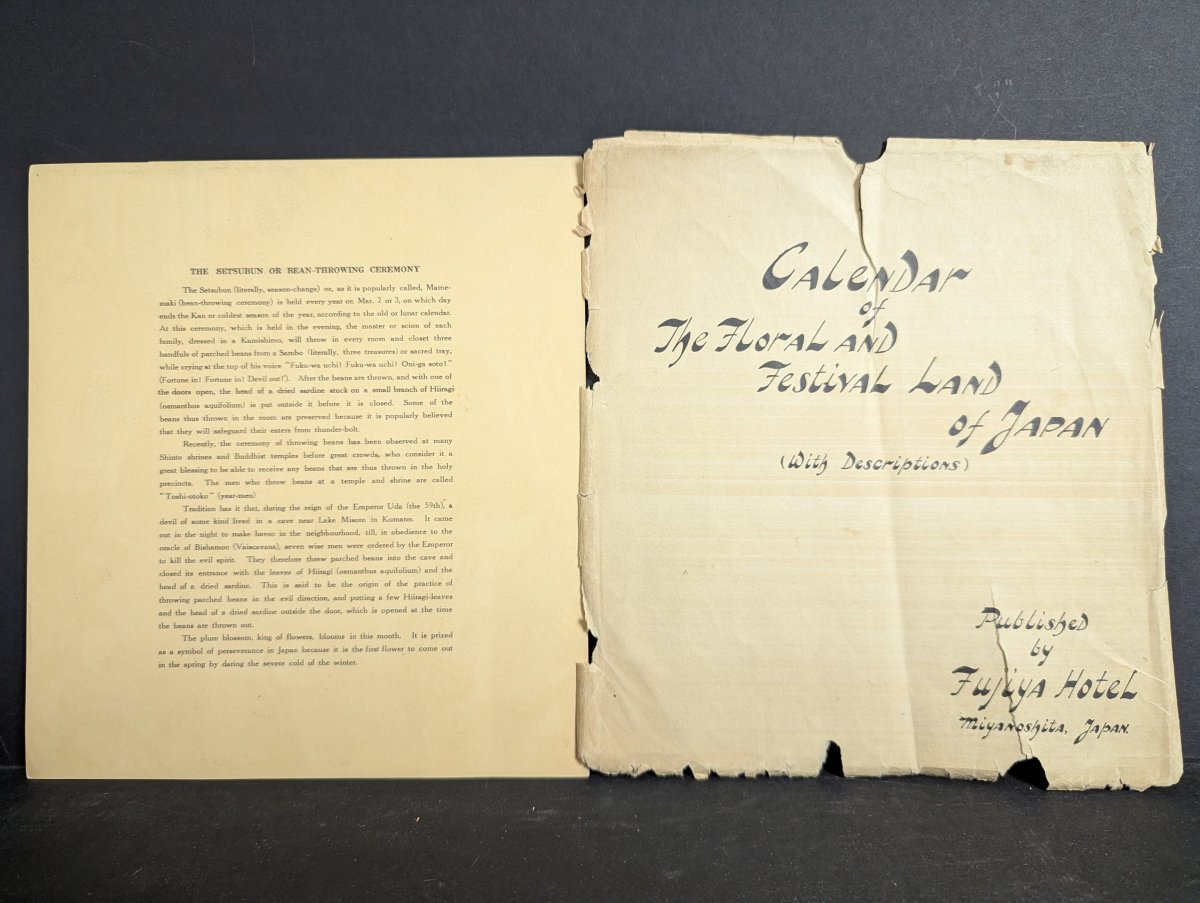 THE SETSUBUN OR BEAN-THROWING CEREMONY
The Setsubun (literally, season-change) or, as it is popularly called, Mame-
maki (bean-throwing ceremony) is held every year on Mar. 2 or 3, on which day
ends the Kan or coldest season of the year, according to the old or lunar calendar.
At this ceremony, which is held in the evening, the master or scion of each
family, dressed in a Kamishimo, will throw in every room and closet three
handfuls of parched beans from a Sambo (literally, three treasures) or sacred tray,
while crying at the top of his voice "Fuku-wa uchi! Fuku-wa uchi! Oni-ga soto!"
(Fortune in! Fortune in! Devil out!"). After the beans are thrown, and with one of
the doors open, the head of a dried sardine stuck on a small branch of Hiiragi
(osmanthus aquifolium) is put outside it before it is closed. Some of the
beans thus thrown in the room are preserved because it is popularly believed
that they will safeguard their eaters from thunder-bolt.
Recently, the ceremony of throwing beans has been observed at many
Shinto shrines and Buddhist temples before great crowds, who consider it a
great blessing to be able to receive any beans that are thus thrown in the holy
precincts. The men who throw beans at a temple and shrine are called
"Toshi-otoko" (year-men)
Tradition has it that, during the reign of the Emperor Uda (the 59th), a
devil of some kind lived in a cave near Lake Misoro in Kumano. It came
out in the night to make havoc in the neighbourhood, till, in obedience to the
oracle of Bishamon (Vaiscavana), seven wise men were ordered by the Emperor
to kill the evil spirit. They therefore threw parched beans into the cave and
closed its entrance with the leaves of Hiiragi (osmanthus aquifolium) and the
head of a dried sardine. This is said to be the origin of the practice of
throwing parched beans in the evil direction, and putting a few Hiiragi-leaves
and the head of a dried sardine outside the door, which is opened at the time
the beans are thrown out.
The plum blossom, king of flowers, blooms in this month. It is prized
as a symbol of perseverance in Japan because it is the first flower to come out
in the spring by daring the severe cold of the winter.
Calendar
of
The Floral and
Festival Land
of Japan
(With Descriptions)
Published
by
Fujiya Hotel
Miyanoshita, Japan.